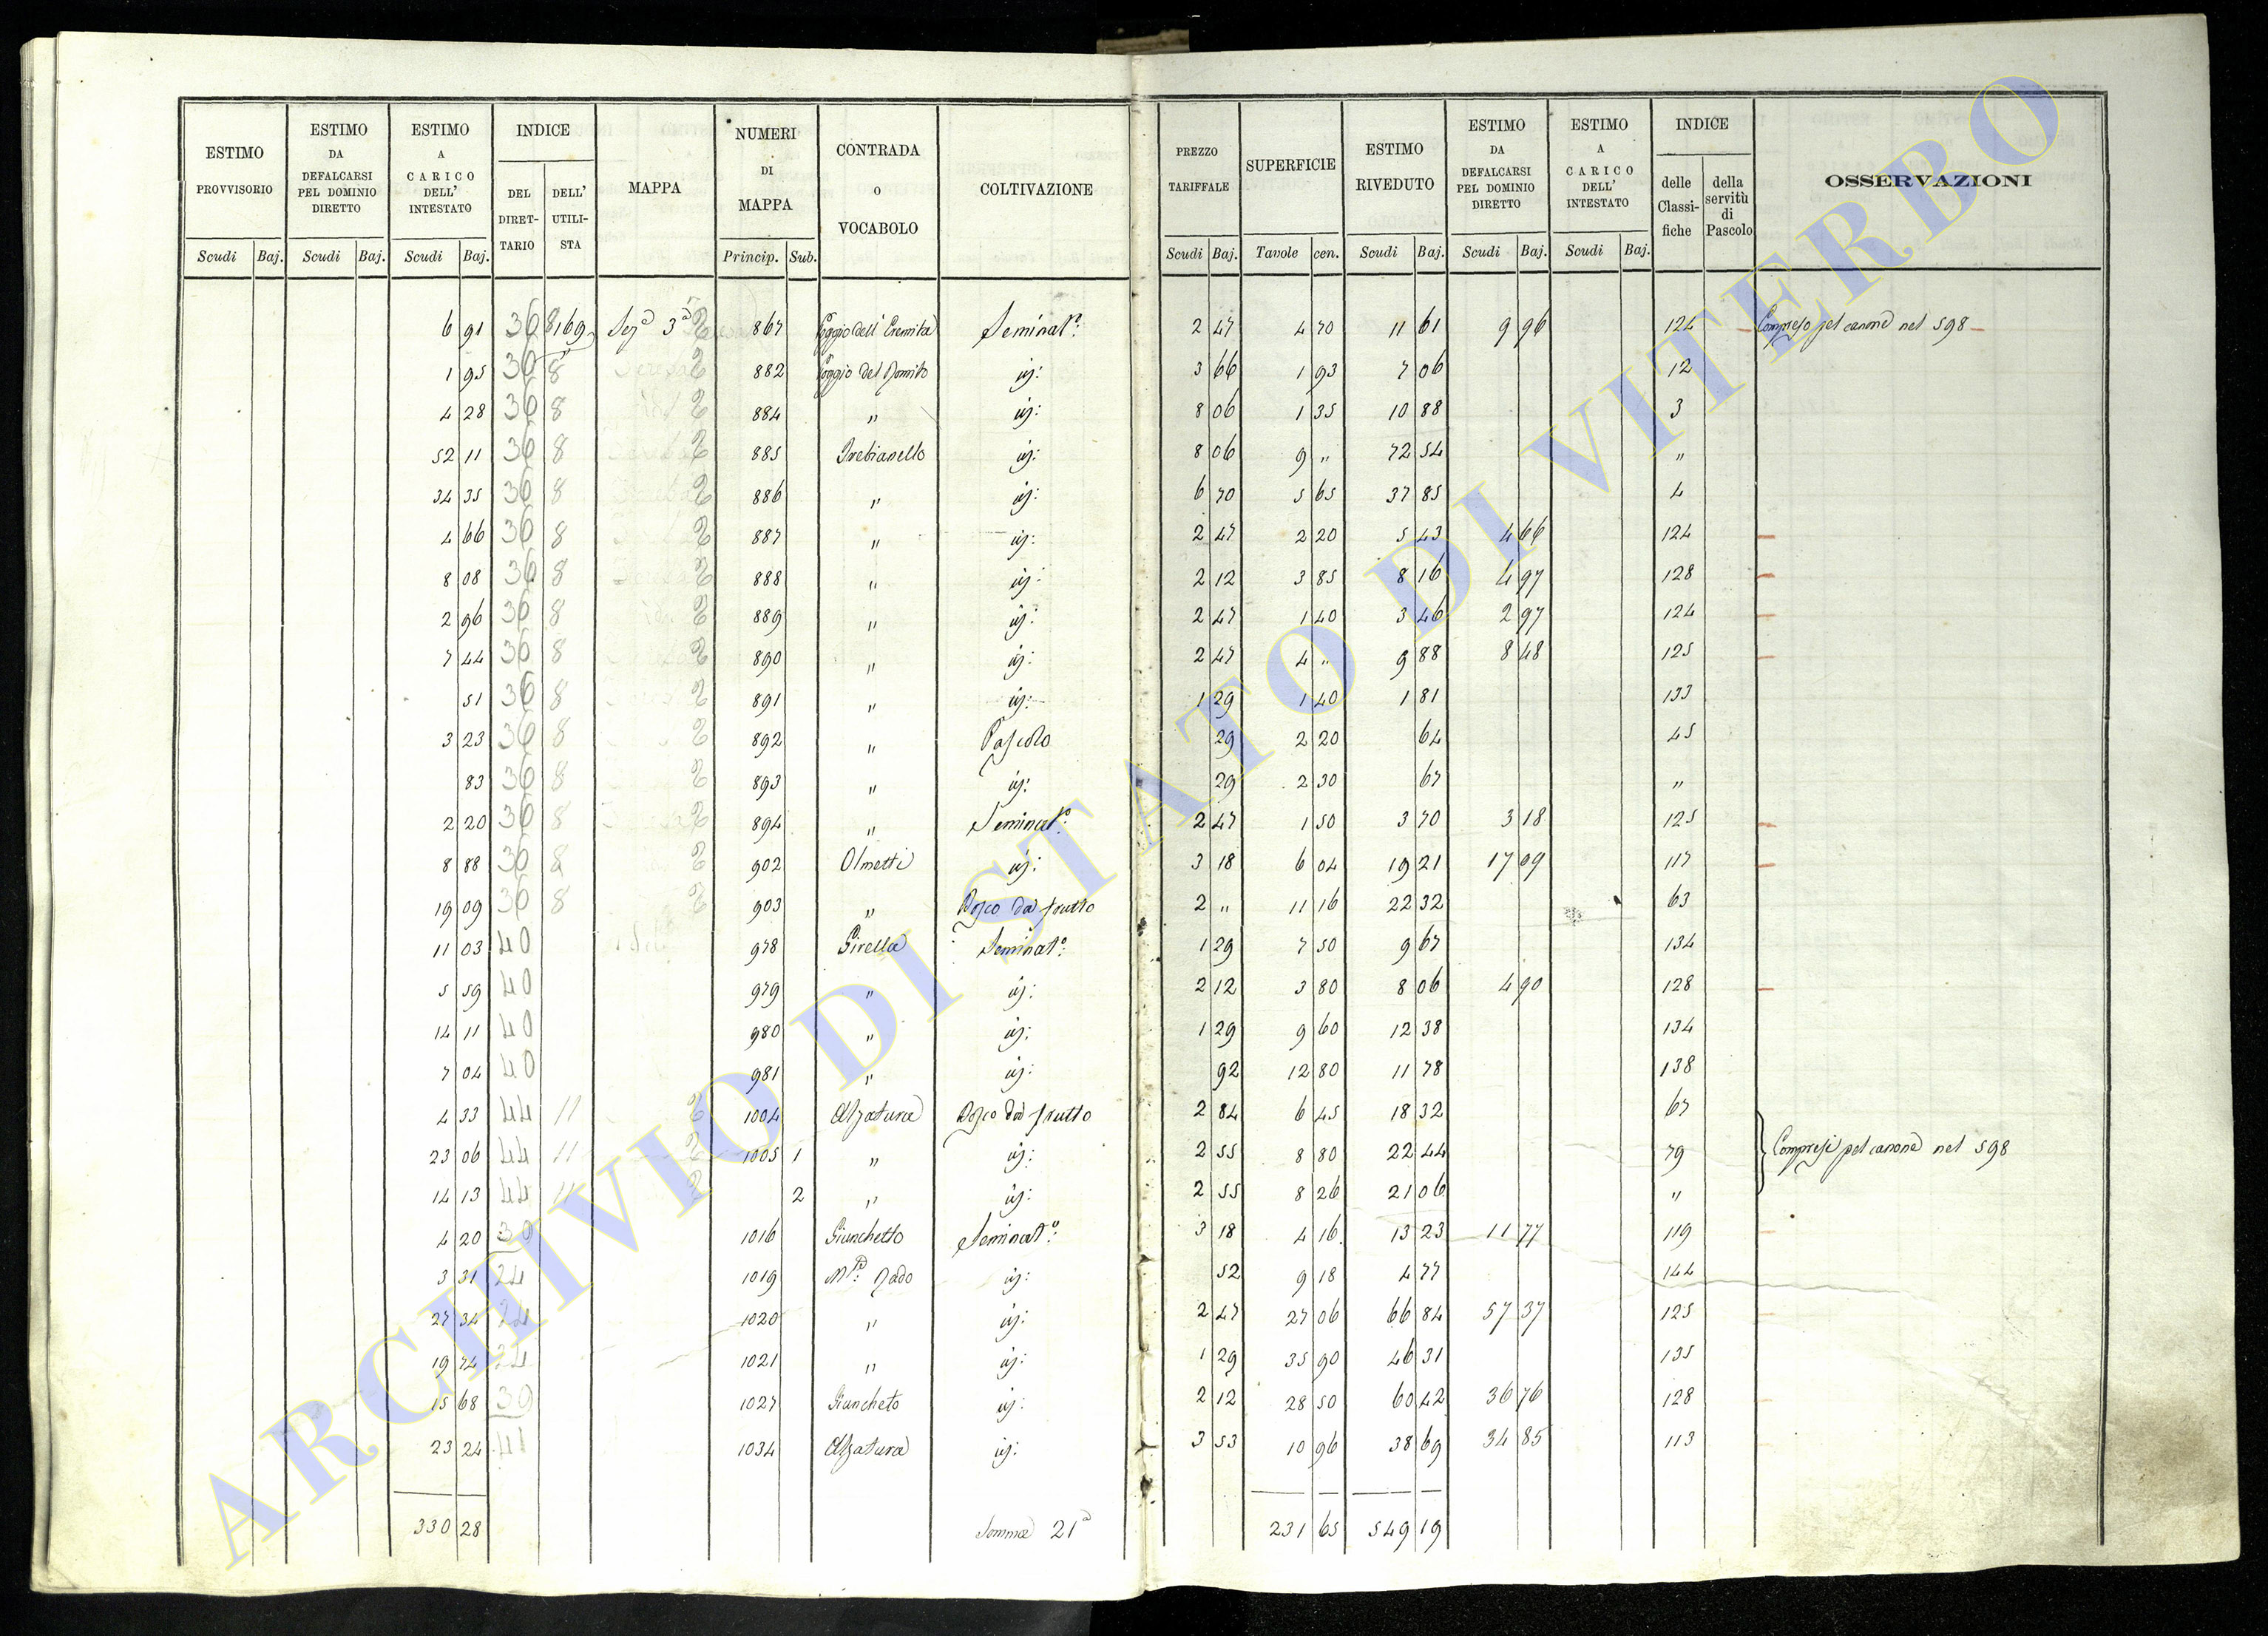 ESTIMO PROVVISORIO | ESTIMO DA DEFALCARSI PEL DOMINIO DIRETTO | ESTIMO A CARICO DELL' INTESTATO | INDICE | MAPPA | NUMERI DI MAPPA | CONTRADA O VOCABOLO | COLTIVAZIONE | PREZZO TARIFFALE | SUPERFICIE | ESTIMO RIVEDUTO | ESTIMO DA DEFALCARSI PEL DOMINIO DIRETTO | ESTIMO A CARICO DELL' INTESTATO | INDICE | OSSERVAZIONI
DEL DIRETTARIO | DELL' UTILISTA | delle Classifiche | della servitù di Pascolo
Scudi | Baj. | Scudi | Baj. | Scudi | Baj. | Princip. | Sub. | Scudi | Baj. | Tavole | cen. | Scudi | Baj. | Scudi | Baj. | Scudi | Baj.
6 91 | 36 | 8,169 | Sez.a 3a 2 | 867 | Poggio dell'Eremita | Seminat.o | 2 47 | 4 70 | 11 61 | 9 96 | 124 | Compreso pel canone nel 598
1 95 | 36 | 8 | 2 | 882 | Poggio del Romito | id: | 3 66 | 1 93 | 7 06 | 12
4 28 | 36 | 8 | 2 | 884 | " | id: | 8 06 | 1 35 | 10 88 | 3
52 11 | 36 | 8 | 2 | 885 | Trebianello | id: | 8 06 | 9 " | 72 54 | "
34 35 | 36 | 8 | 2 | 886 | " | id: | 6 70 | 5 65 | 37 85 | 4
4 66 | 36 | 8 | 2 | 887 | " | id: | 2 47 | 2 20 | 5 43 | 4 66 | 124
8 08 | 36 | 8 | 2 | 888 | " | id: | 2 12 | 3 85 | 8 16 | 4 97 | 128
2 96 | 36 | 8 | 2 | 889 | " | id: | 2 47 | 1 40 | 3 46 | 2 97 | 124
7 44 | 36 | 8 | 2 | 890 | " | id: | 2 47 | 4 " | 9 88 | 8 48 | 125
51 | 36 | 8 | 2 | 891 | " | id: | 1 29 | 1 40 | 1 81 | 133
3 23 | 36 | 8 | 2 | 892 | " | Pascolo | 29 | 2 20 | 64 | 45
83 | 36 | 8 | 2 | 893 | " | id: | 29 | 2 30 | 67 | "
2 20 | 36 | 8 | 2 | 894 | " | Seminat.o | 2 47 | 1 50 | 3 70 | 3 18 | 125
8 88 | 36 | 8 | 2 | 902 | Olmetti | id: | 3 18 | 6 04 | 19 21 | 17 09 | 117
19 09 | 36 | 8 | 2 | 903 | " | Bosco da frutto | 2 " | 11 16 | 22 32 | 63
11 03 | 40 | 978 | Girella | Seminat.o | 1 29 | 7 50 | 9 67 | 134
5 59 | 40 | 979 | " | id: | 2 12 | 3 80 | 8 06 | 4 90 | 128
14 11 | 40 | 980 | " | id: | 1 29 | 9 60 | 12 38 | 134
7 04 | 40 | 981 | " | id: | 92 | 12 80 | 11 78 | 138
4 33 | 44 | 11 | 2 | 1004 | Alzatura | Bosco da frutto | 2 84 | 6 45 | 18 32 | 67
23 06 | 44 | 11 | 2 | 1005 | 1 | " | id: | 2 55 | 8 80 | 22 44 | 79 | Compresi pel canone nel 598
14 13 | 44 | 11 | 2 | 2 | " | id: | 2 55 | 8 26 | 21 06 | "
4 20 | 39 | 1016 | Giunchetto | Seminat.o | 3 18 | 4 16 | 13 23 | 11 77 | 119
3 31 | 24 | 1019 | id: | 52 | 9 18 | 4 77 | 144
27 34 | 24 | 1020 | " | id: | 2 47 | 27 06 | 66 84 | 57 37 | 125
19 74 | 24 | 1021 | " | id: | 1 29 | 35 90 | 46 31 | 135
15 68 | 39 | 1027 | Giuncheto | id: | 2 12 | 28 50 | 60 42 | 36 76 | 128
23 24 | 41 | 1034 | Alzatura | id: | 3 53 | 10 96 | 38 69 | 34 85 | 113
330 28 | Somma 21a | 231 65 | 549 19
ARCHIVIO DI STATO DI VITERBO